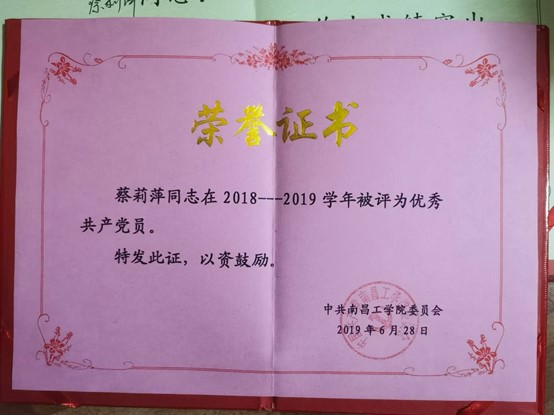 蔡莉萍同志
荣誉证书
蔡莉萍同志在2018---2019学年被评为优秀
共产党员。
特发此证，以资鼓励。
中共南昌工学院委员会
2019年6月28日